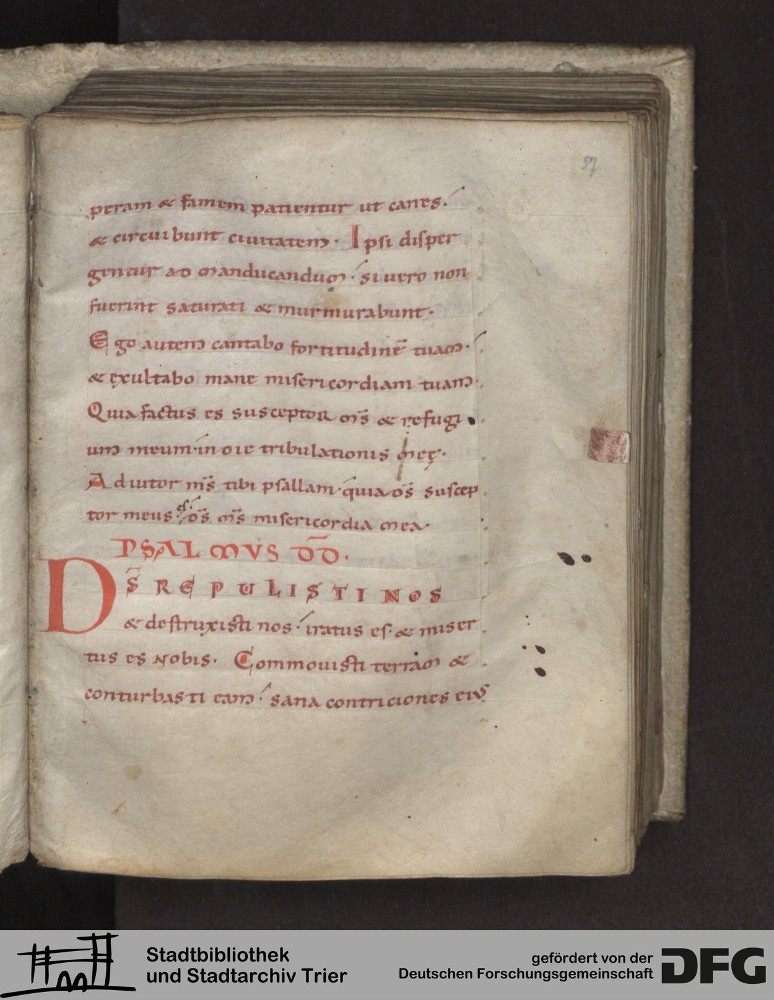 peram & famem patientur ut canes.
& circuibunt ciuitatem. Ipsi disper
gentur ad manducandum. si uero non
fuerint saturati & murmurabunt.
Ego autem cantabo fortitudinē tuam.
& ęxultabo mane misericordiam tuam.
Quia factus es susceptor m̄s & refugi
um meum. in oīe tribulationis meę.
Adiutor m̄s tibi psallam. quia d̄s suscep
tor meus es. d̄s m̄s misericordia mea.
PSALMVS D̄D.
D̄S REPULISTI NOS
& destruxisti nos. iratus es. & miser
tus es nobis. Commouisti terram &
conturbasti eam. sana contriciones eius
Stadtbibliothek
und Stadtarchiv Trier
gefördert von der
Deutschen Forschungsgemeinschaft DFG